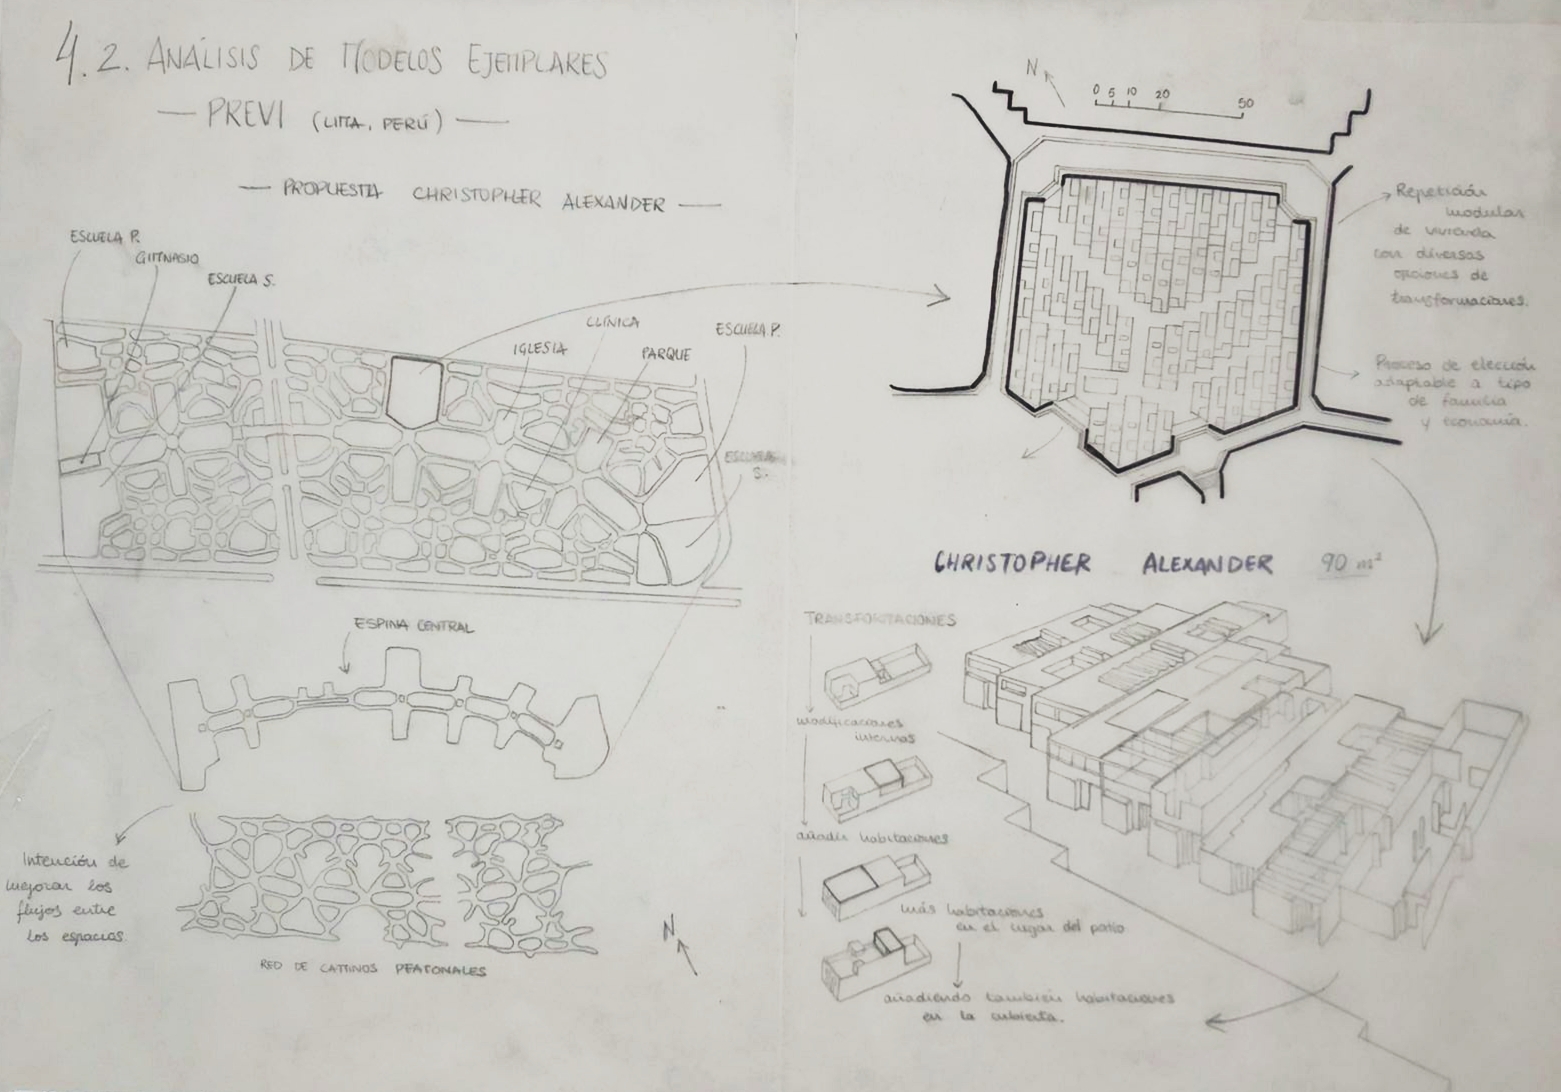 4.2. ANÁLISIS DE MODELOS EJEMPLARES
— PREVI (LIMA, PERÚ) —
— PROPUESTA CHRISTOPHER ALEXANDER —
ESCUELA P.
GIMNASIO
ESCUELA S.
CLÍNICA
IGLESIA
PARQUE
ESCUELA P.
ESCUELA
S.
ESPINA CENTRAL
Intención de
mejorar los
flujos entre
los espacios.
RED DE CAMINOS PEATONALES
N
N
0 5 10 20 50
Repetición
modular
de vivienda
con diversas
opciones de
transformaciones.
Proceso de elección
adaptable a tipo
de familia
y economía.
CHRISTOPHER ALEXANDER 90 m²
TRANSFORMACIONES
modificaciones
internas
añadir habitaciones
más habitaciones
en el lugar del patio
añadiendo también habitaciones
en la cubierta.